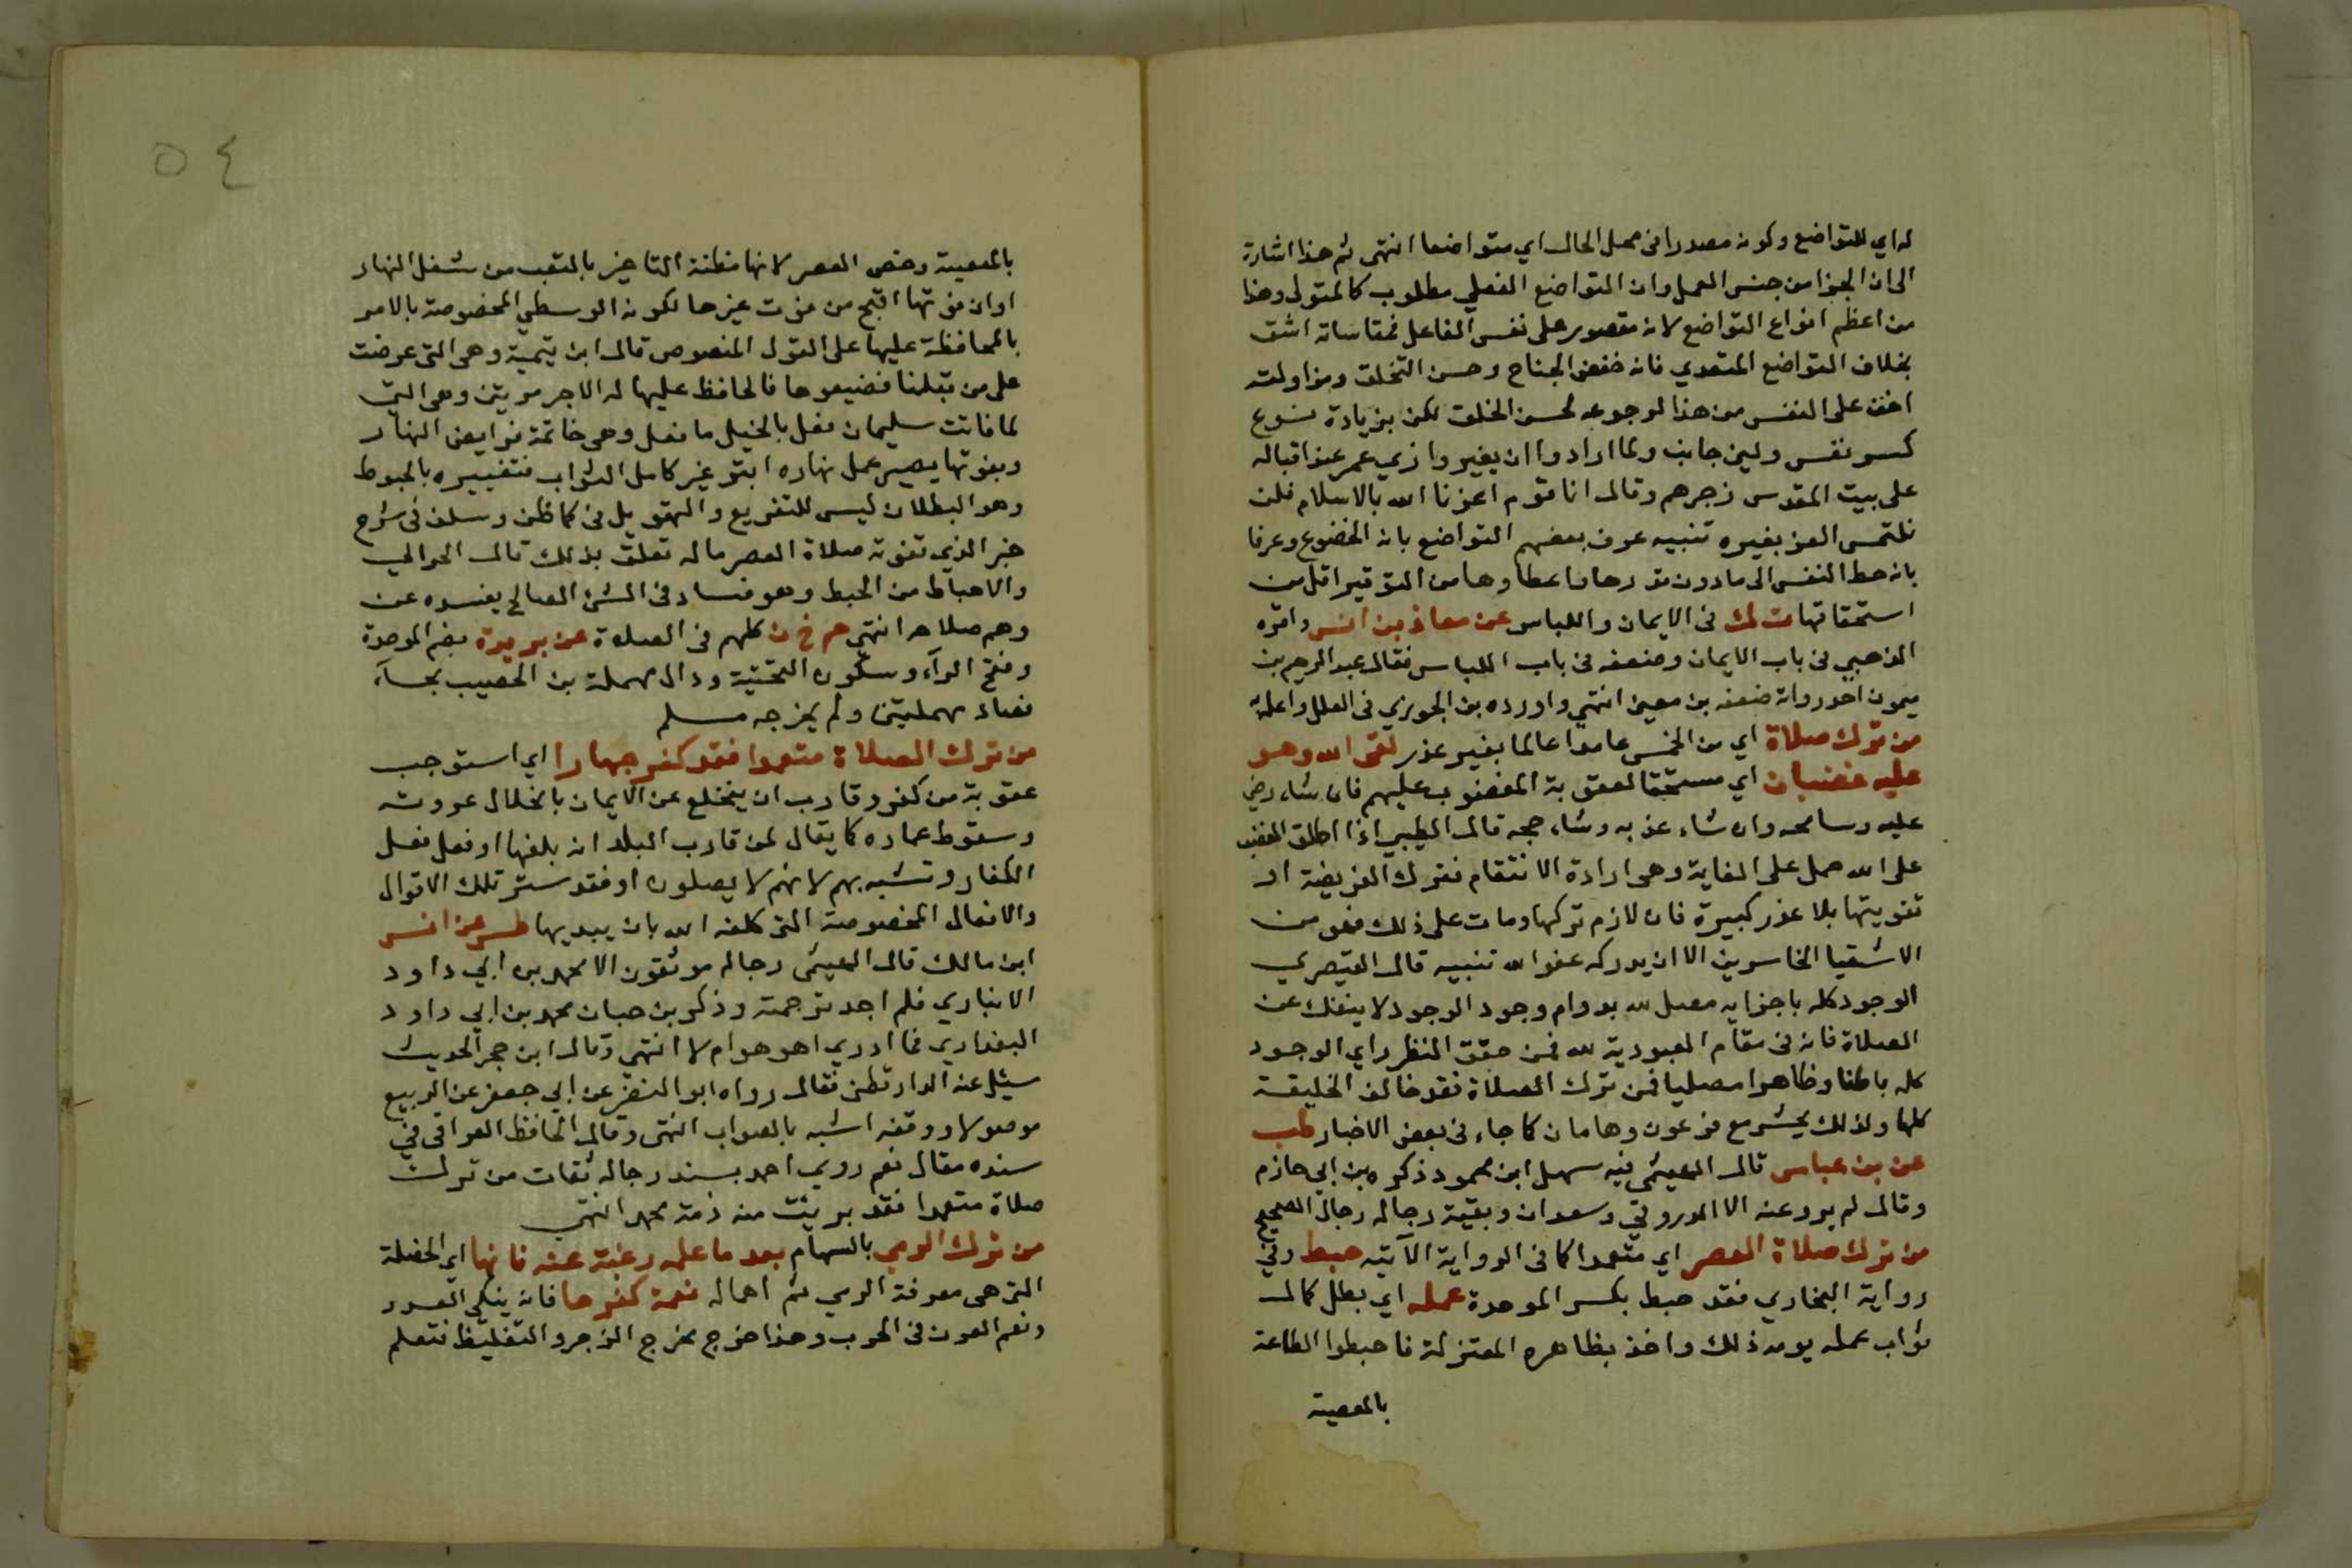 له اي للتواضع وكونه مصدرا في محل الحال اي متواضعا انتهى ثم هذا اشارة
الى ان الجزا من جنس العمل وان التواضع الفعلي مطلوب كالقولي وهذا
من اعظم انواع التواضع لانه مقصور على نفس الفاعل فمقاساته اشق
بخلاف التواضع المتعدي فانه خفض الجناح وحسن التخلق ومزاولته
اخف على النفس من هذا لرجوعه لحسن الخلق لكن بزيادة نوع
كسر نفس ولين جانب ولما ارادوا ان يغيروا زي عمر عند اقباله
على بيت المقدس زجرهم وقال انا قوم اعزنا الله بالاسلام فلن
نلتمس العز بغيره تنبيه عرف بعضهم التواضع بانه الخضوع وعرفا
بانه حط النفس الى ما دون قدرها واعطاوها من التوقير اقل من
استحقاقها ت ك في الايمان واللباس عن معاذ بن انس واقره
الذهبي في باب الايمان وضعفه في باب اللباس فقال عبد الرحيم بن
ميمون احد رواته ضعفه بن معين انتهي واورده بن الجوزي في العلل واعله به
من ترك صلاة اي من الخمس عامدا عالما بغير عذر لقى الله وهو
عليه غضبان اي مستحقا لعقوبة المغضوب عليهم فان شاء رضي
عليه وسامحه وان شاء عذبه وشاء حجه قال الطيبي اذا اطلق الغضب
على الله حمل على الغاية وهى ارادة الانتقام فترك الفريضة او
تفويتها بلا عذر كبيرة فان لازم تركها ومات على ذلك فهو من
الاشقيا الخاسرين الا ان يدركه عفو الله تنبيه قال القيصري
الوجود كله باجزايه مصل لله بدوام وجود الوجود لا ينفك عن
الصلاة فانه في مقام العبودية لله فمن حقق النظر راي الوجود
كله باطنا وظاهرا مصليا فمن ترك الصلاة فقد خالف الخليقة
كلها ولذلك يحشر مع فرعون وهامان كما جاء في بعض الاخبار طب
عن بن عباس قال الهيثمي فيه سهل ابن محمود ذكره بن ابي حازم
وقال لم يرو عنه الا الدورقي وسعدان وبقية رجاله رجال الصحيح
من ترك صلاة العصر اي متعمدا كما في الرواية الآتيه حبط وفي
رواية البخاري فقد حبط بكسر الموحدة عمله اي بطل كمال
ثواب عمله يومه ذلك واخذ بظاهره المعتزلة فاحبطوا الطاعة
بالمعصية
٥٤
بالمعصية وخص العصر لانها مظنة التاخير بالتعب من شغل النهار
او ان فوتها اقبح من فوت غيرها لكونه الوسطي المخصوصة بالامر
بالمحافظة عليها على القول المنصوص قال ابن تيمية وهى التى عرضت
على من قبلنا فضيعوها فالحافظ عليها له الاجر مرتين وهى التى
لما فاتت سليمان فعل بالخيل ما فعل وهى خاتمة فرايض النهار
وبفوتها يصير عمل نهاره ابتر غير كامل الثواب فتعبيره بالحبوط
وهو البطلان ليس للتقريع والتهويل فى كما ظن وسلف فى شرح
خبر الذي تفوته صلاة العصر ما له تعلق بذلك قال الحرالي
والاحباط من الحبط وهو فساد فى الشئ الصالح يفسده عن
وهم صلاحه انتهى حم خ ن كلهم في الصلاة عن بريدة بضم الموحدة
وفتح الرآء وسكون التحتية ودال مهملة بن الحصيب بحاء
فصاد مهملتين ولم يخرجه مسلم
من ترك الصلاة متعمدا فقد كفر جهارا اي استوجب
عقوبة من كفر وقارب ان ينخلع عن الايمان بانحلال عروته
وسقوط عماده كما يقال لمن قارب البلد انه بلغها او فعل فعل
الكفار وتشبه بهم لانهم لا يصلون او فقد ستر تلك الاقوال
والافعال المخصوصة التى كلفه الله بان يبديها طس عن انس
ابن مالك قال الهيثمى رجاله موثقون الا محمد بن ابي داود
الانباري فلم اجد ترجمته وذكر بن حبان محمد بن ابي داود
البغدادي فما ادري اهو هو ام لا انتهي وقال ابن حجر الحديث
سئل عنه الدارقطني فقال رواه ابو النضر عن ابي جعفر عن الربيع
موصولا ووقفه اشبه بالصواب انتهى وقال الحافظ العراقى في
سنده مقال نعم روي احمد بسند رجاله ثقات من ترك
صلاة متعمدا فقد برئت منه ذمة محمد انتهي
من ترك الرمي بالسهام بعد ما علمه رغبة عنه فانها اي الخصلة
التى هى معرفة الرمي ثم اهماله نعمة كفرها فانه ينكي العدو
ونعم العون فى الحرب وهذا خرج مخرج الزجر والتغليظ فتعلم